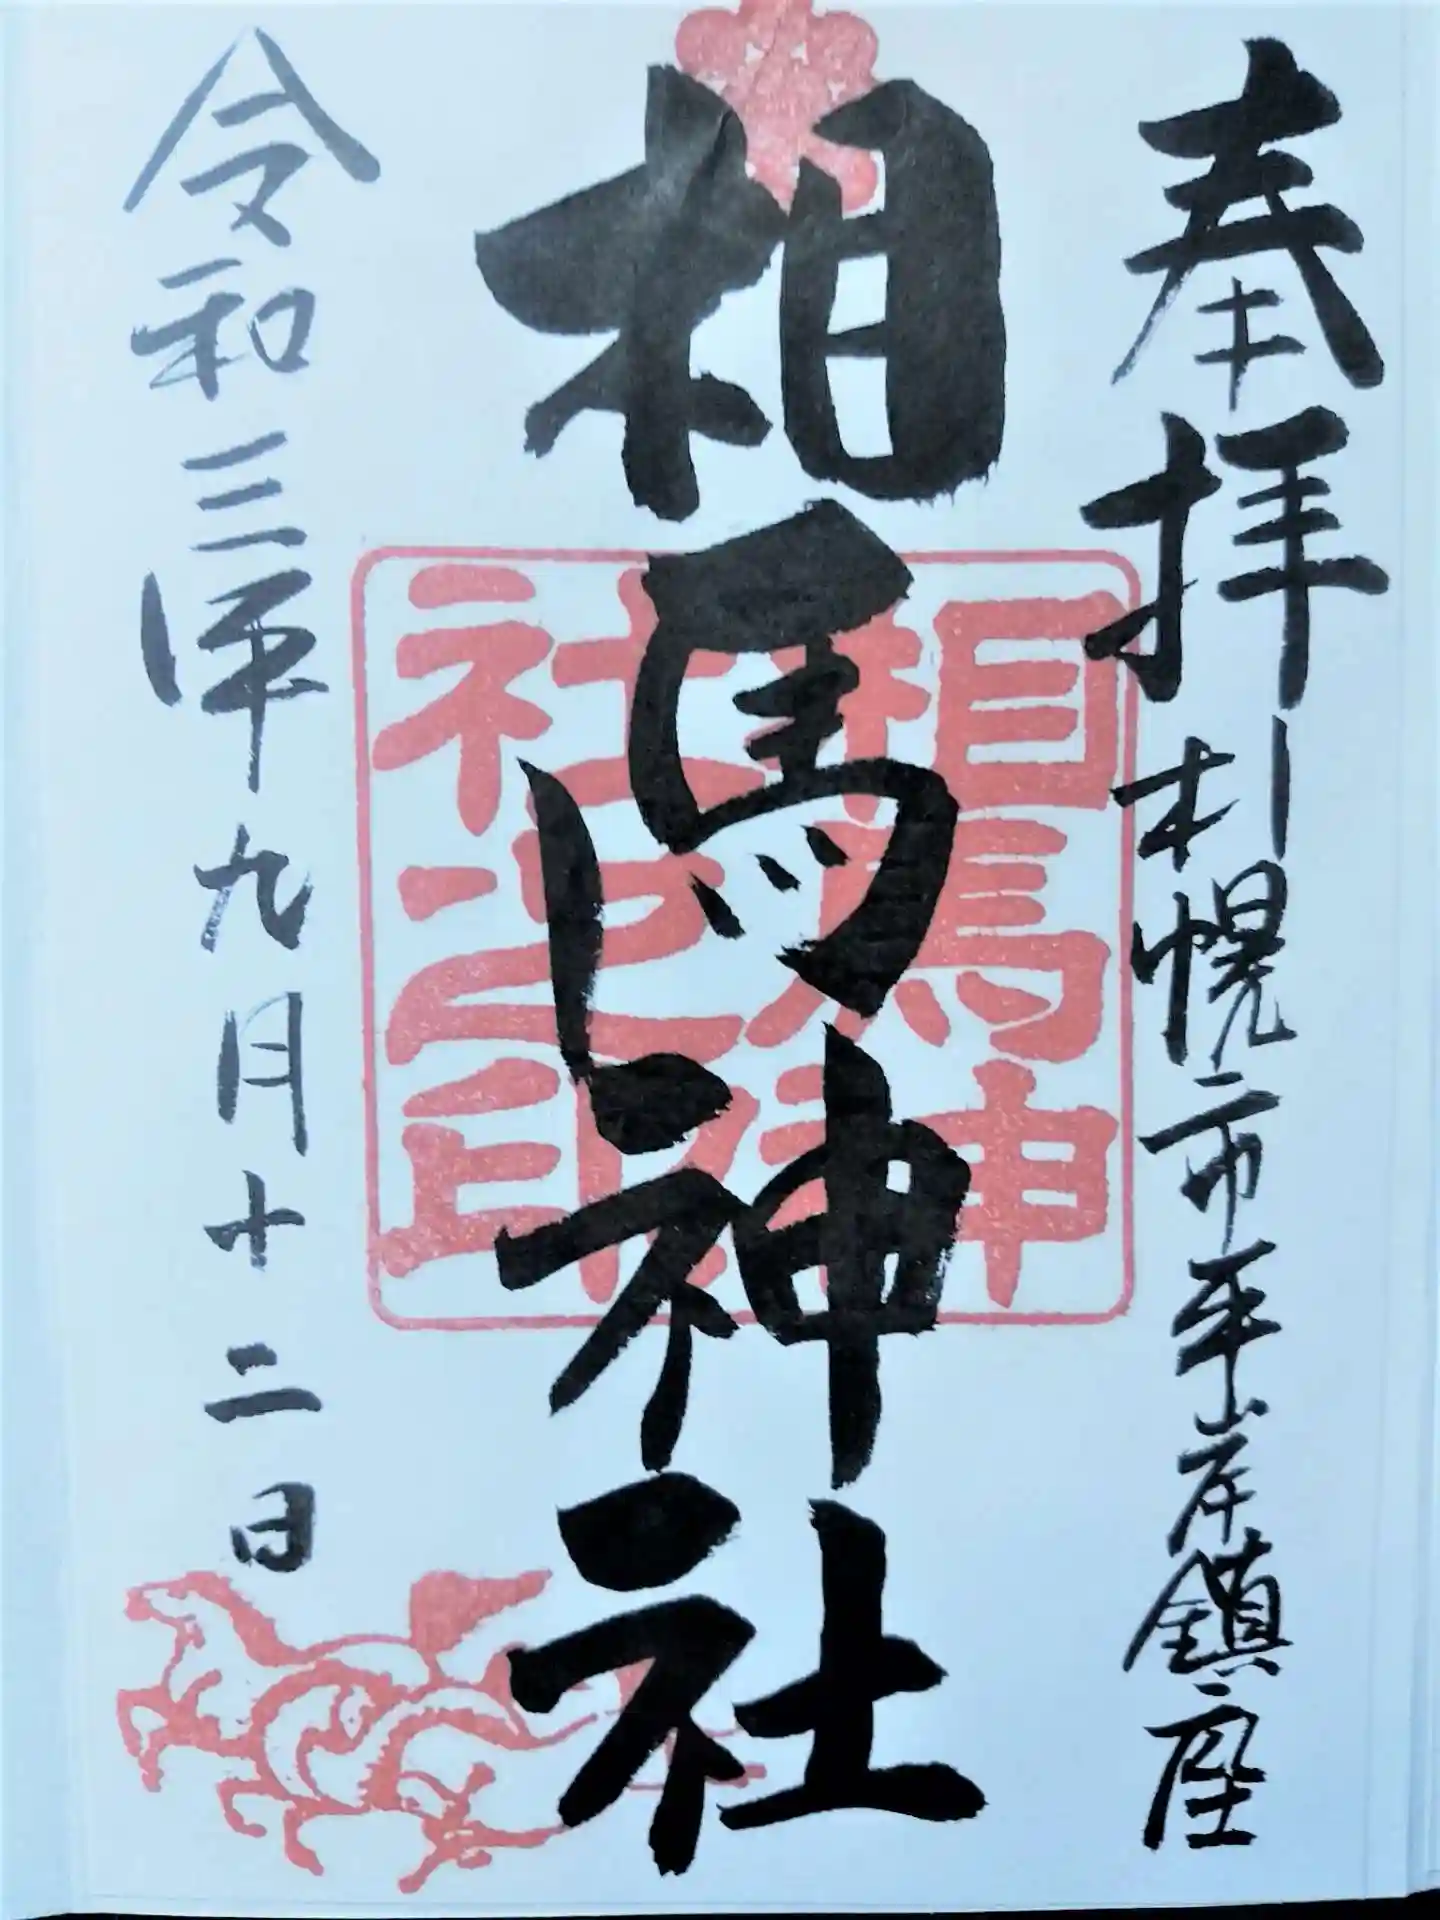 奉拝 札幌市平岸鎮座
相馬神社
相馬神
社之印
令和三年九月十二日